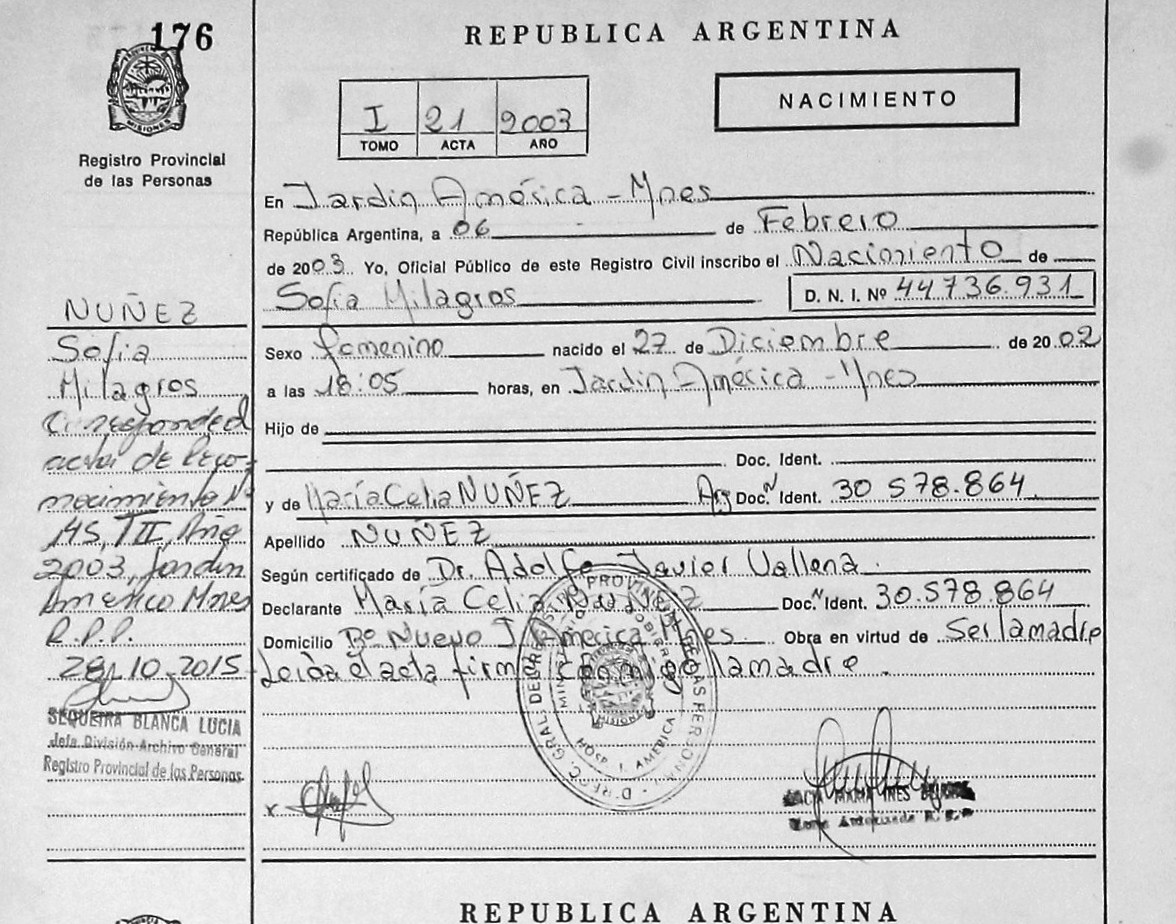 176
REPUBLICA ARGENTINA
MISIONES
Registro Provincial
de las Personas
I 21 2003
TOMO ACTA AÑO
NACIMIENTO
En Jardin América - Mnes
República Argentina, a 06 de Febrero
de 2003 Yo, Oficial Público de este Registro Civil inscribo el Nacimiento de
Sofía Milagros D. N. I. Nº 44736.931
Sexo femenino nacido el 27 de Diciembre de 20 02
a las 18:05 horas, en Jardin América - Mnes
Hijo de
Doc. Ident.
y de María Celia NUÑEZ Arg Doc. N Ident. 30 578.864
Apellido NUÑEZ
Según certificado de Dr. Adolfo Javier Vallena.
Declarante María Celia Nuñez Doc. N Ident. 30.578.864
Domicilio Bº Nuevo J. America Mnes. Obra en virtud de Ser la madre
Leida el acta firma conmigo la madre.
NUÑEZ
Sofia
Milagros
Corresponde al
acta de Reco-
nocimiento Nº
145, TII, Año
2003, Jardín
América Mnes
R.P.P.
28-10-2015
SEQUEIRA BLANCA LUCIA
Jefa División Archivo General
Registro Provincial de las Personas
HOSP. J. AMERICA
MISIONES
x
MARIA INES
REPUBLICA ARGENTINA